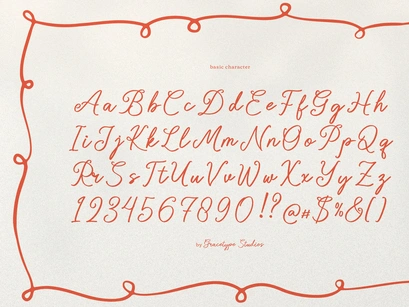 basic character
Aa Bb Cc Dd Ee Ff Gg Hh
Ii Jj Kk Ll Mm Nn Oo Pp Qq
Rr Ss Tt Uu Vv Ww Xx Yy Zz
1234567890!?@#$%&()
by Gracetype Studios